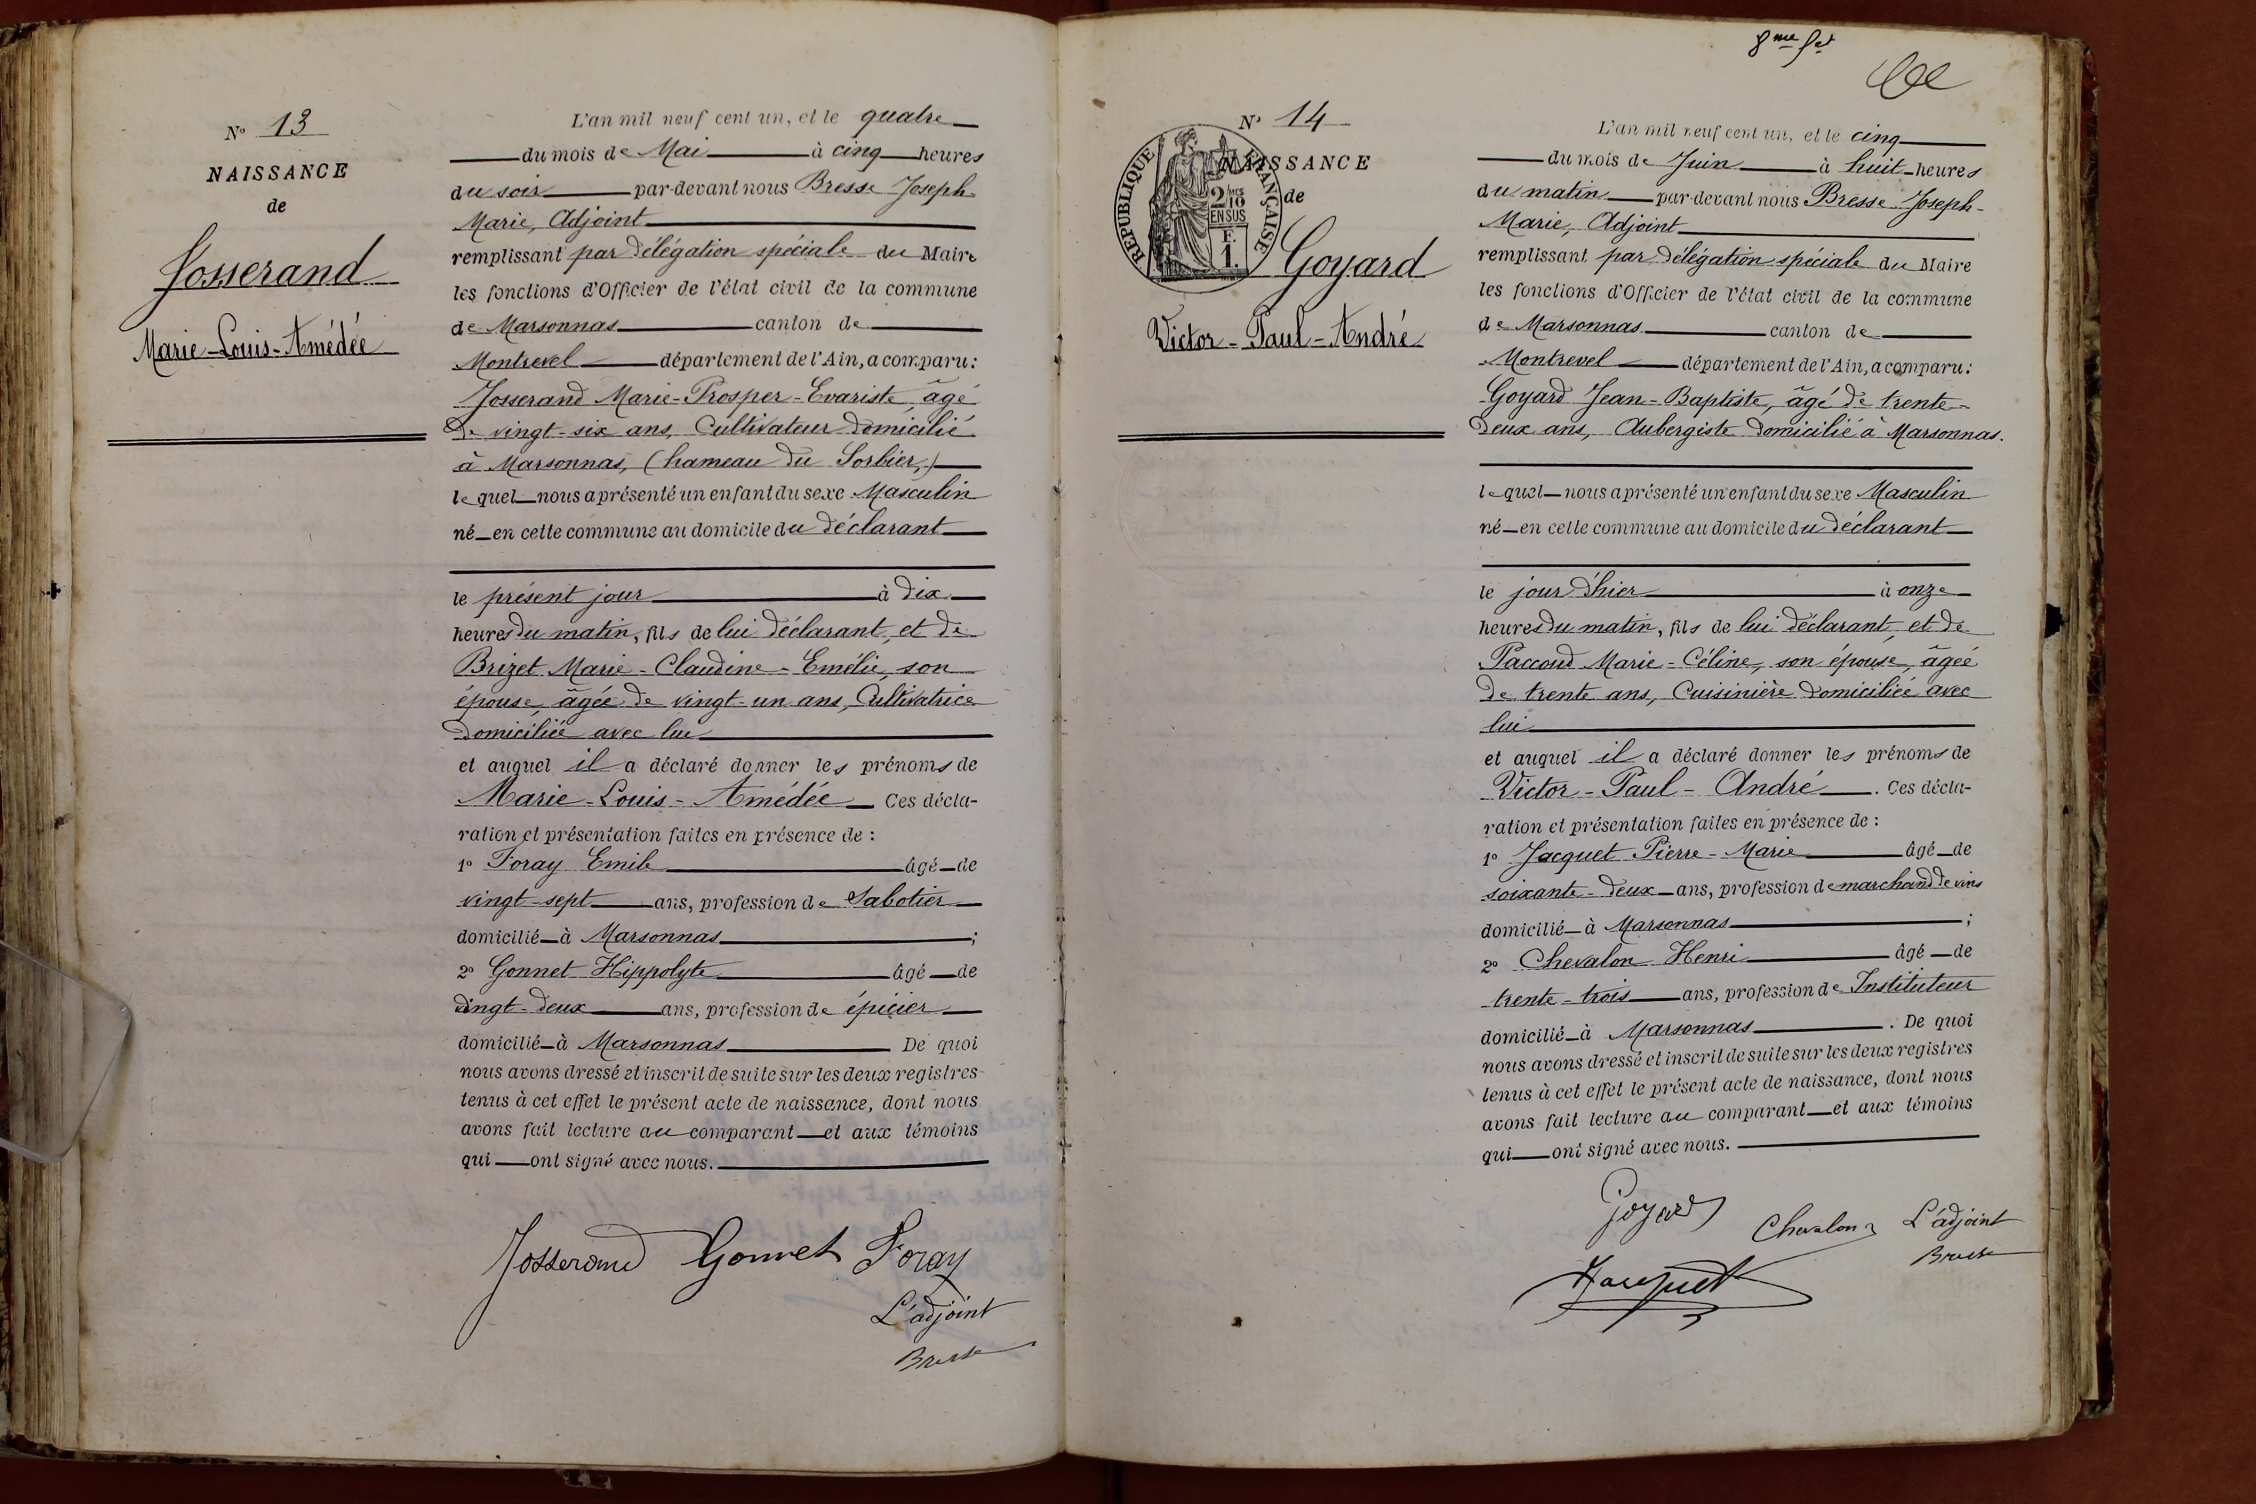 N° 13
NAISSANCE
de
Josserand
Marie-Louis-Amédée
L'an mil neuf cent un, et le quatre
du mois de Mai à cinq heures
du soir par-devant nous Bresse Joseph-
Marie, Adjoint
remplissant par délégation spéciale du Maire
les fonctions d'Officier de l'état civil de la commune
de Marsonnas canton de
Montrevel département de l'Ain, a comparu:
Josserand Marie-Prosper-Evariste, âgé
de vingt-six ans, Cultivateur domicilié
à Marsonnas, (hameau du Sorbier,)
lequel nous a présenté un enfant du sexe Masculin
né en cette commune au domicile du déclarant
le présent jour à dix
heures du matin, fils de lui déclarant, et de
Brizet Marie-Claudine-Emélie, son
épouse, âgée de vingt-un ans, Cultivatrice
domiciliée avec lui
et auquel il a déclaré donner les prénoms de
Marie-Louis-Amédée Ces décla-
ration et présentation faites en présence de :
1° Foray Emile âgé de
vingt-sept ans, profession de Sabotier
domicilié à Marsonnas ;
2° Gonnet Hippolyte âgé de
vingt-deux ans, profession de épicier
domicilié à Marsonnas De quoi
nous avons dressé et inscrit de suite sur les deux registres
tenus à cet effet le présent acte de naissance, dont nous
avons fait lecture au comparant et aux témoins
qui ont signé avec nous.
Josserand Gonnet Foray
L'adjoint
Bresse
8me f et
N° 14
NAISSANCE
de
REPUBLIQUE FRANÇAISE
2/10 EN SUS
F. 1.
Goyard
Victor-Paul-André
L'an mil neuf cent un, et le cinq
du mois de Juin à huit heures
du matin par-devant nous Bresse Joseph-
Marie, Adjoint
remplissant par délégation spéciale du Maire
les fonctions d'Officier de l'état civil de la commune
de Marsonnas canton de
Montrevel département de l'Ain, a comparu:
Goyard Jean-Baptiste, âgé de trente-
deux ans, Aubergiste domicilié à Marsonnas.
lequel nous a présenté un enfant du sexe Masculin
né en cette commune au domicile du déclarant
le jour d'hier à onze
heures du matin, fils de lui déclarant, et de
Paccoud Marie-Céline, son épouse, âgée
de trente ans, Cuisinière domiciliée avec
lui
et auquel il a déclaré donner les prénoms de
Victor-Paul-André. Ces décla-
ration et présentation faites en présence de :
1° Jacquet Pierre-Marie âgé de
soixante-deux ans, profession de marchand de vins
domicilié à Marsonnas ;
2° Chevalon Henri âgé de
trente-trois ans, profession de Instituteur
domicilié à Marsonnas. De quoi
nous avons dressé et inscrit de suite sur les deux registres
tenus à cet effet le présent acte de naissance, dont nous
avons fait lecture au comparant et aux témoins
qui ont signé avec nous.
Goyard Chevalon L'adjoint
Jacquet Bresse